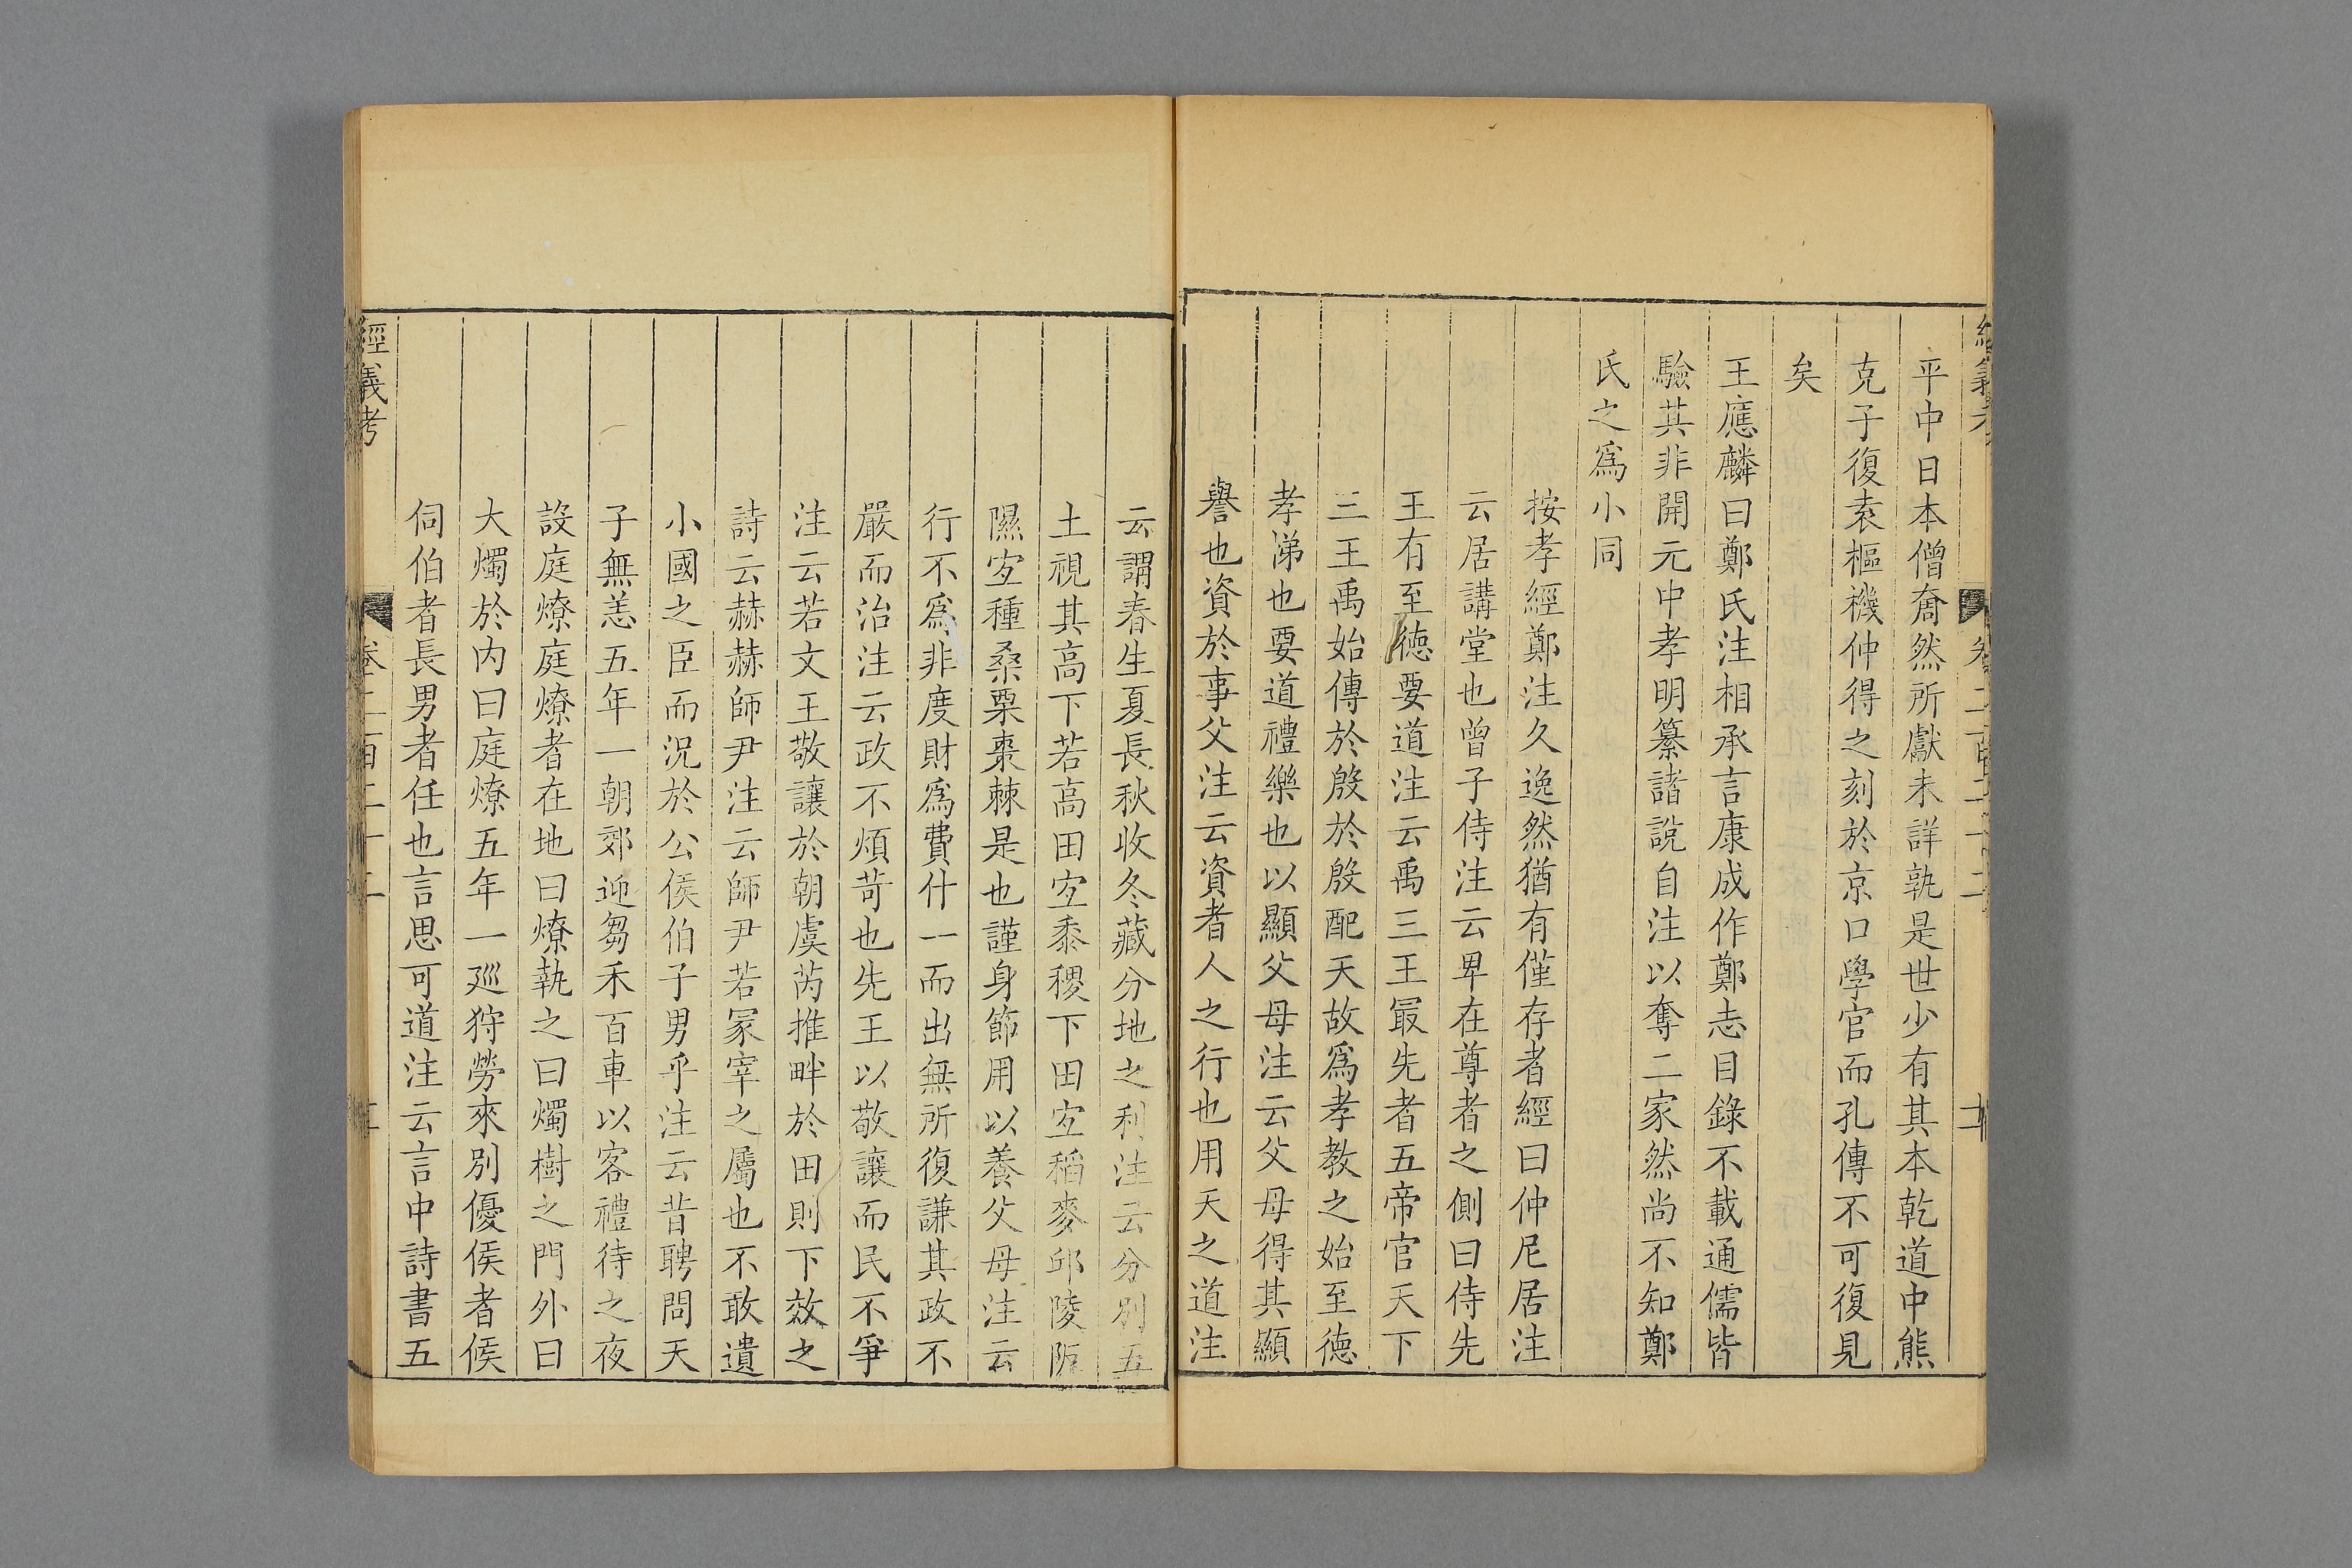 平中日本僧奝然所獻未詳孰是世少有其本乾道中熊
克子復袁樞禨仲得之刻於京口學官而孔傳不可復見
矣
王應麟曰鄭氏注相承言康成作鄭志目錄不載通儒皆
驗其非開元中孝明纂諸說自注以奪二家然尚不知鄭
氏之爲小同
按孝經鄭注久逸然猶有僅存者經曰仲尼居注
云居講堂也曾子侍注云卑在尊者之側曰侍先
王有至德要道注云禹三王最先者五帝官天下
三王禹始傳於殷於殷配天故爲孝教之始至德
孝涕也要道禮樂也以顯父母注云父母得其顯
譽也資於事父注云資者人之行也用天之道注
云謂春生夏長秋收冬藏分地之利注云分別五
土視其高下若高田宜黍稷下田宜稻麥邱陵阪
隰宜種桑栗棗棘是也謹身節用以養父母注云
行不爲非度財爲費什一而出無所復謙其政不
嚴而治注云政不煩苛也先王以敬讓而民不爭
注云若文王敬讓於朝虞芮推畔於田則下效之
詩云赫赫師尹注云師尹若冢宰之屬也不敢遺
小國之臣而況於公侯伯子男乎注云昔聘問天
子無恙五年一朝郊迎芻禾百車以客禮待之夜
設庭燎庭燎者在地曰燎執之曰燭樹之門外曰
大燭於內曰庭燎五年一廵狩勞來別優侯者候
伺伯者長男者任也言思可道注云言中詩書五
經義考
卷二百二十二